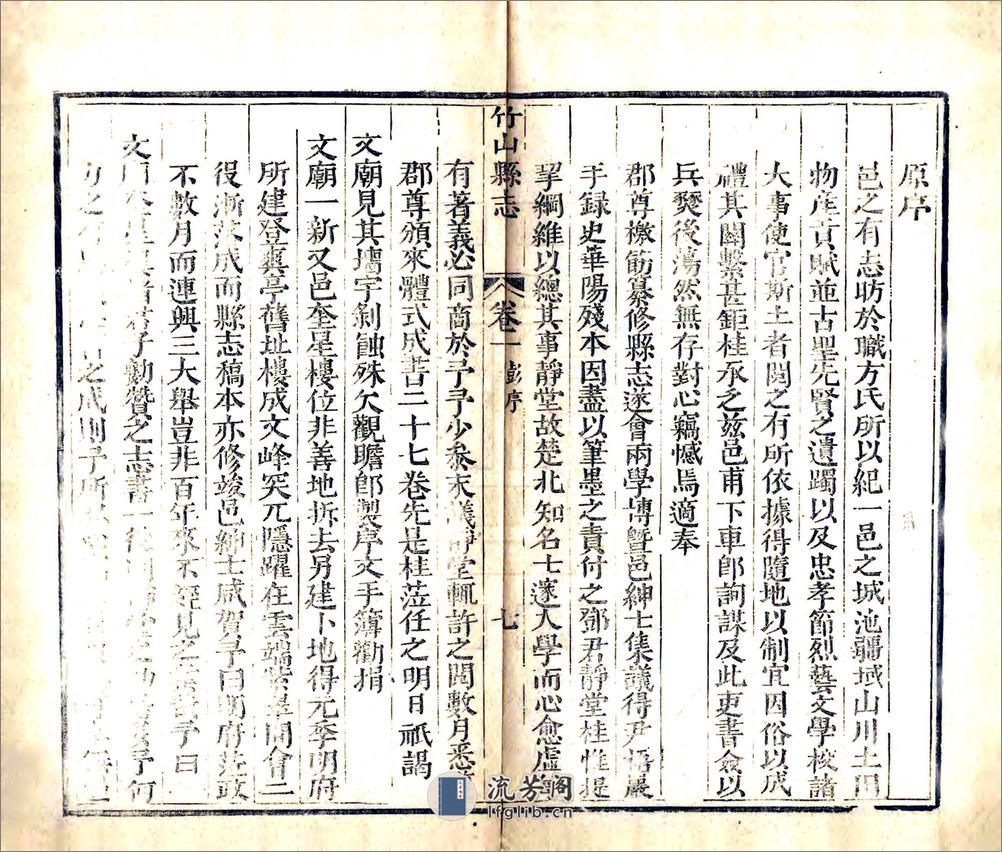 原序
邑之有志昉於職方氏所以紀一邑之城池疆域山川土田
物產貢賦並古聖先賢之遺躅以及忠孝節烈藝文學校諸
大事使官斯土者閱之有所依據得隨地以制宜因俗以成
禮其關繫甚鉅桂承乏茲邑甫下車卽詢謀及此吏書僉以
兵燹後蕩然無存對心竊憾焉適奉
郡尊檄飭纂修縣志遂會兩學博曁邑紳士集議得尹 巖
手録史華陽殘本因盡以筆墨之責付之鄧君靜堂桂惟提
挈綱維以總其事靜堂故楚北知名士邃大學而心愈虛
竹山縣志
卷一
彭序
七
有著義必同商於予予少叅末議靜堂輒許之閱數月悉
郡尊頒來體式成書二十七卷先是桂蒞任之明日祇謁
文廟見其墻宇剝蝕殊欠觀瞻卽製序文手簿勸捐
文廟一新又邑奎星樓位非善地拆去另建卜地得元季明府
所建登龔亭舊址樓成文峰突兀隱躍在雲端紫 間會二
役漸次落成而縣志稿本亦修竣邑紳士咸賀予曰明府蒞政
不數月而連興三大舉豈非百年來不經見之 予曰
文 君子勷贊之志書一 予何
之成則予所
流芳閣
lfglib.cn